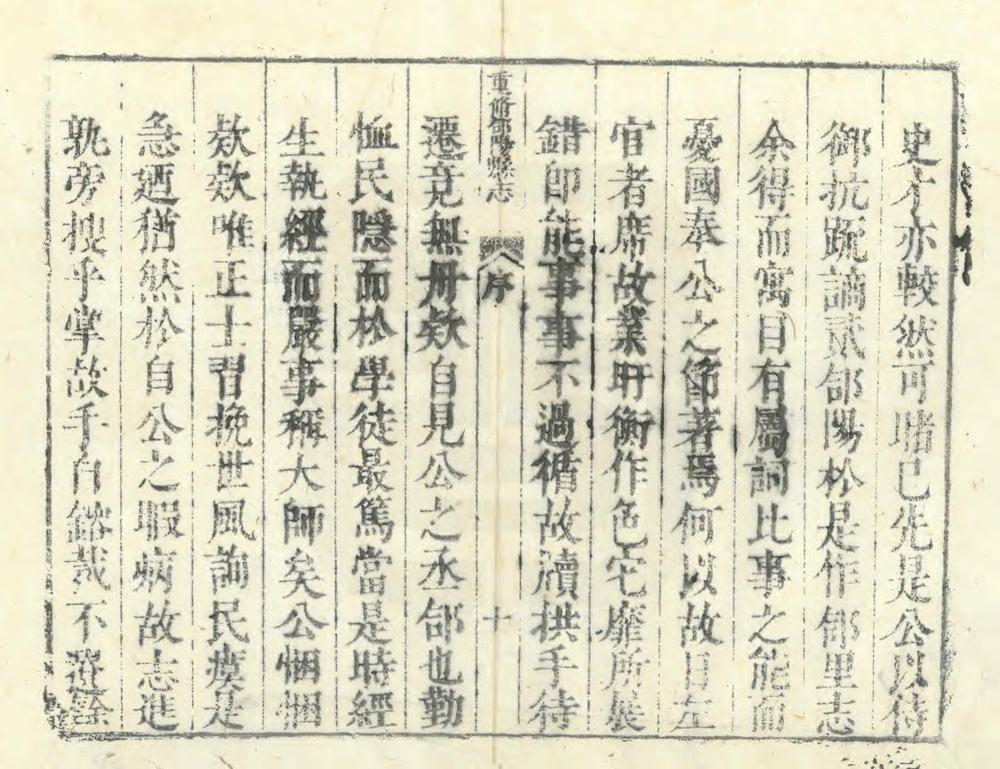 史才亦較然可睹已先是公以侍
御抗疏謫貳郃陽於是作郃里志
余得而寓目有屬詞比事之能而
憂國奉公之節著焉何以故目左
官者席故業盱衡作色它靡所展
錯即能事事不過循故牘拱手待
重脩郃陽縣志
序
十
遷竟無毋欸自見公之丞郃也勤
恤民隱而於學徒最篤當是時經
生執經而嚴事稱大師矣公悃悃
欵欵唯正士習挽世風詢民瘼是
急迺猶然於自公之暇病故志進
孰旁搜乎掌故手自鎔裁不